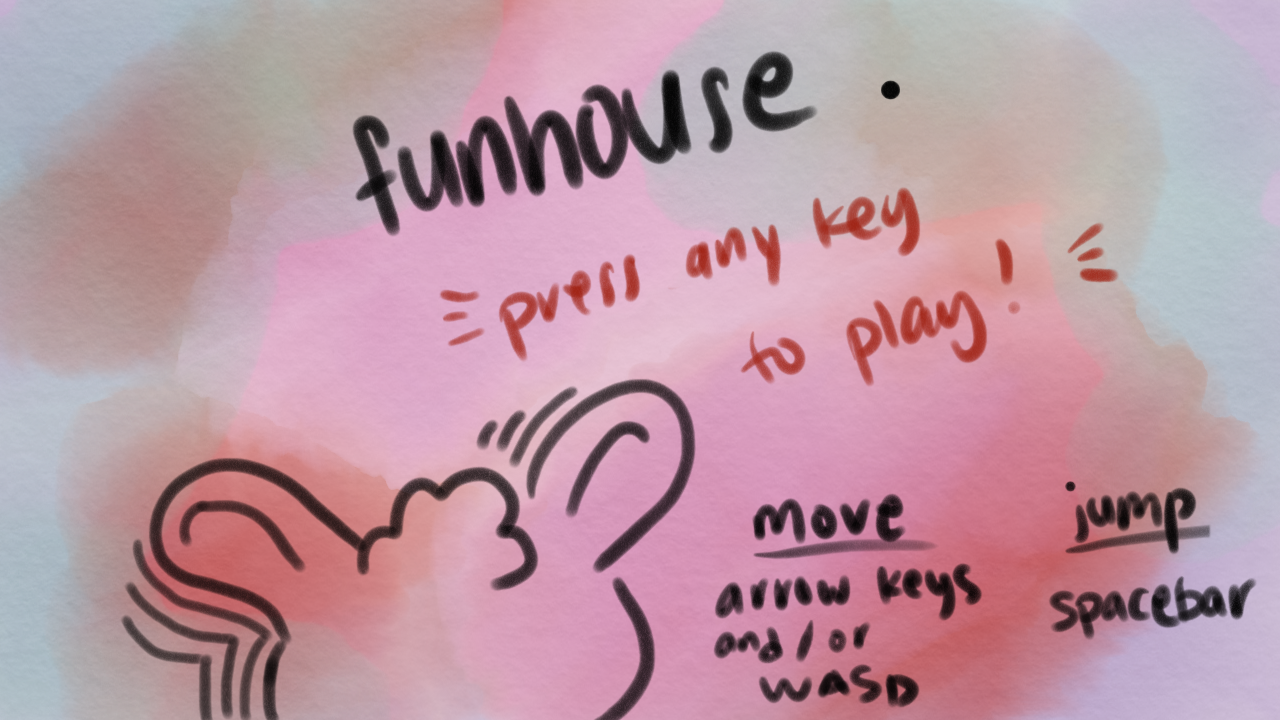 funhouse.
press any key
to play!
move
arrow keys
and/or
WASD
jump
spacebar